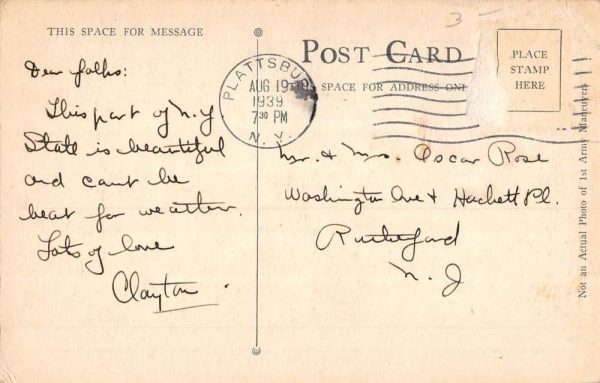 THIS SPACE FOR MESSAGE
Dear folks:
This part of N.Y
State is beautiful
and cant be
beat for weather.
Lots of love
Clayton
3-
POST CARD
SPACE FOR ADDRESS ONL
PLACE
STAMP
HERE
PLATTSBUR
AUG 19
1939
7 30 PM
N. Y.
Mr. & Mrs. Oscar Rose
Washington Ave & Hackett Pl.
Rutherford
N. J
Not an Actual Photo of 1st Army Maneuvers